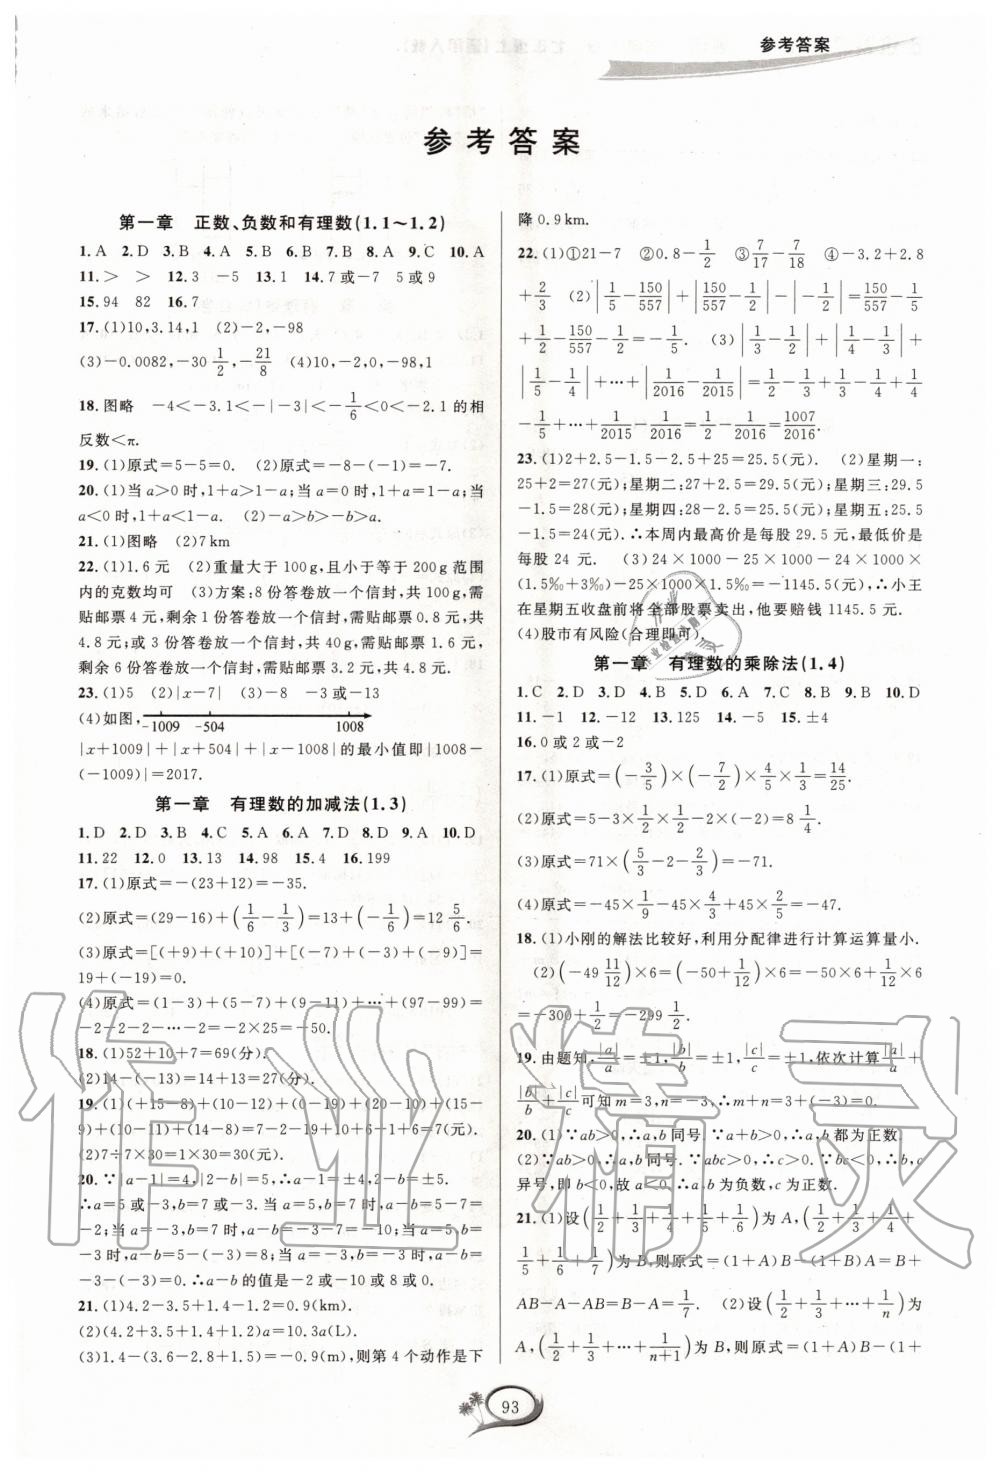 参考答案
参考答案
第一章 正数、负数和有理数(1.1~1.2)
1.A 2.D 3.B 4.A 5.B 6.B 7.B 8.A 9.C 10.A
11.> > 12.3 -5 13.1 14.7或-7 5或9
15.94 82 16.7
17.(1)10,3.14,1 (2)-2,-98
(3)-0.0082,-30 1/2,-21/8 (4)10,-2,0,-98,1
18.图略 -4<-3.1<-|-3|<-1/6<0<-2.1的相
反数<π.
19.(1)原式=5-5=0. (2)原式=-8-(-1)=-7.
20.(1)当a>0时,1+a>1-a;当a=0时,1+a=1-a;当
a<0时,1+a<1-a. (2)-a>b>-b>a.
21.(1)图略 (2)7km
22.(1)1.6元 (2)重量大于100g,且小于等于200g范围
内的克数均可 (3)方案:8份答卷放一个信封,共100g,需
贴邮票4元,剩余1份答卷放一个信封,需贴邮票0.8元,共
4.8元;或3份答卷放一个信封,共40g,需贴邮票1.6元,
剩余6份答卷放一个信封,需贴邮票3.2元,共4.8元.
23.(1)5 (2)|x-7| (3)-8 -3或-13
(4)如图,
-1009 -504 1008
|x+1009|+|x+504|+|x-1008|的最小值即|1008-
(-1009)|=2017.
第一章 有理数的加减法(1.3)
1.D 2.D 3.B 4.C 5.A 6.A 7.D 8.B 9.A 10.D
11.22 12.0 13.13 14.98 15.4 16.199
17.(1)原式=-(23+12)=-35.
(2)原式=(29-16)+(1/6-1/3)=13+(-1/6)=12 5/6.
(3)原式=[(+9)+(+10)]+[(-7)+(-3)+(-9)]=
19+(-19)=0.
(4)原式=(1-3)+(5-7)+(9-11)+…+(97-99)=
-2-2-2-…-2=-2×25=-50.
18.(1)52+10+7=69(分).
(2)14-(-13)=14+13=27(分).
19.(1)(+15-8)+(10-12)+(0-19)+(20-10)+(15-
9)+(10-4)+(15-8)=7-2-19+10+6-1+6=7(元).
(2)7÷7×30=1×30=30(元).
20.∵|a-1|=4,|b+2|=5,∴a-1=±4,b+2=±5.
∴a=5或-3,b=7或-3.当a=5,b=7时,a-b=5-7=
-2;当a=-3,b=7时,a-b=-3-7=-10;当a=5,b=
-3时,a-b=5-(-3)=8;当a=-3,b=-3时,a-b=
-3+3=0.∴a-b的值是-2或-10或8或0.
21.(1)4.2-3.5+1.4-1.2=0.9(km).
(2)(4.2+3.5+1.4+1.2)a=10.3a(L).
(3)1.4-(3.6-2.8+1.5)=-0.9(m),则第4个动作是下
降0.9km.
22.(1)①21-7 ②0.8-1/2 ③7/17-7/18 ④-3.2+2.8
+2/3 (2)|1/5-150/557|+|150/557-1/2|-|-1/2|=150/557-1/5
+1/2-150/557-1/2=-1/5. (3)|1/3-1/2|+|1/4-1/3|+
|1/5-1/4|+…+|1/2016-1/2015|=1/2-1/3+1/3-1/4+1/4
-1/5+…+1/2015-1/2016=1/2-1/2016=1007/2016.
23.(1)2+2.5-1.5-2.5+25=25.5(元). (2)星期一:
25+2=27(元);星期二:27+2.5=29.5(元);星期三:29.5
-1.5=28(元);星期四:28-2.5=25.5(元);星期五:25.5
-1.5=24(元).∴本周内最高价是每股29.5元,最低价是
每股24元. (3)24×1000-25×1000-24×1000×
(1.5‰+1‰)-25×1000×1.5‰=-1145.5(元),∴小王
在星期五收盘前将全部股票卖出,他要赔钱1145.5元.
(4)股市有风险(合理即可).
第一章 有理数的乘除法(1.4)
1.C 2.D 3.D 4.B 5.D 6.A 7.C 8.B 9.B 10.D
11.-1 12.-12 13.125 14.-5 15.±4
16.0或2或-2
17.(1)原式=(-3/5)×(-7/2)×4/5×1/3=14/25.
(2)原式=5-3×1/2×1/2-2×(-2)=8 1/4.
(3)原式=71×(5/3-2-2/3)=-71.
(4)原式=-45×1/9-45×1/3+45×1/5=-47.
18.(1)小刚的解法比较好,利用分配律进行计算运算量小.
(2)(-49 11/12)×6=(-50+1/12)×6=-50×6+1/12×6
=-300+1/2=-299 1/2.
19.由题知,|a|/a=±1,|b|/b=±1,|c|/c=±1,依次计算|a|/a+
|b|/b+|c|/c可知m=3,n=-3,∴m+n=3+(-3)=0.
20.(1)∵ab>0,∴a,b同号.∵a+b>0,∴a,b都为正数.
(2)∵ab>0,∴a,b同号.∵abc>0,∴c>0.∵bc<0,∴b,c
异号,即b<0,故a<0.∴a,b为负数,c为正数.
21.(1)设(1/2+1/3+1/4+1/5+1/6)为A,(1/2+1/3+1/4+
1/5+1/6+1/7)为B,则原式=(1+A)B-(1+B)A=B+
AB-A-AB=B-A=1/7. (2)设(1/2+1/3+…+1/n)为
A,(1/2+1/3+…+1/(n+1))为B,则原式=(1+A)B-(1+
93
作业精灵